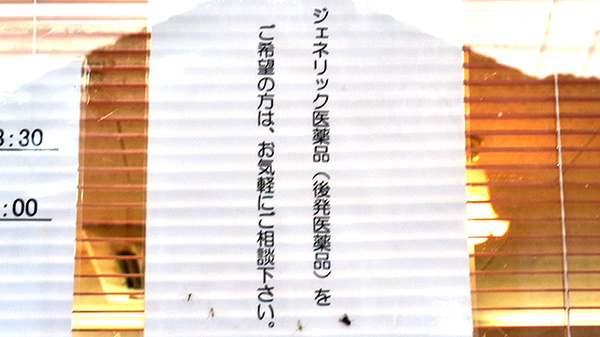 ジェネリック医薬品(後発医薬品)を
ご希望の方は、お気軽にご相談下さい。
:30
:00